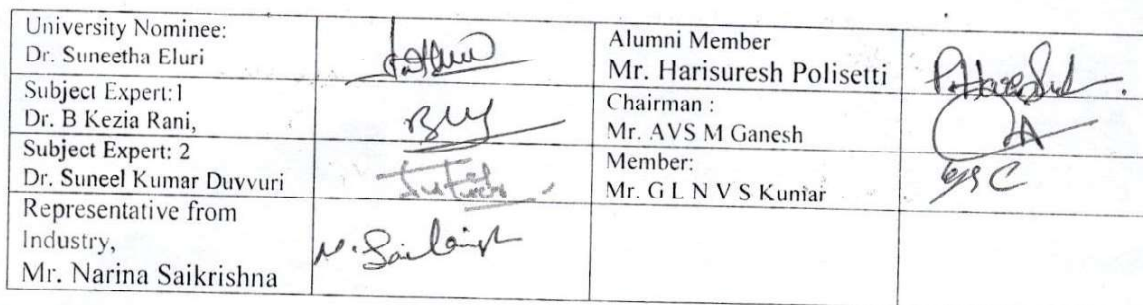 University Nominee:
Dr. Suneetha Eluri
Alumni Member
Mr. Harisuresh Polisetti
Subject Expert:1
Dr. B Kezia Rani,
Chairman :
Mr. AVS M Ganesh
Subject Expert: 2
Dr. Suneel Kumar Duvvuri
Member:
Mr. G L N V S Kumar
Representative from
Industry,
Mr. Narina Saikrishna